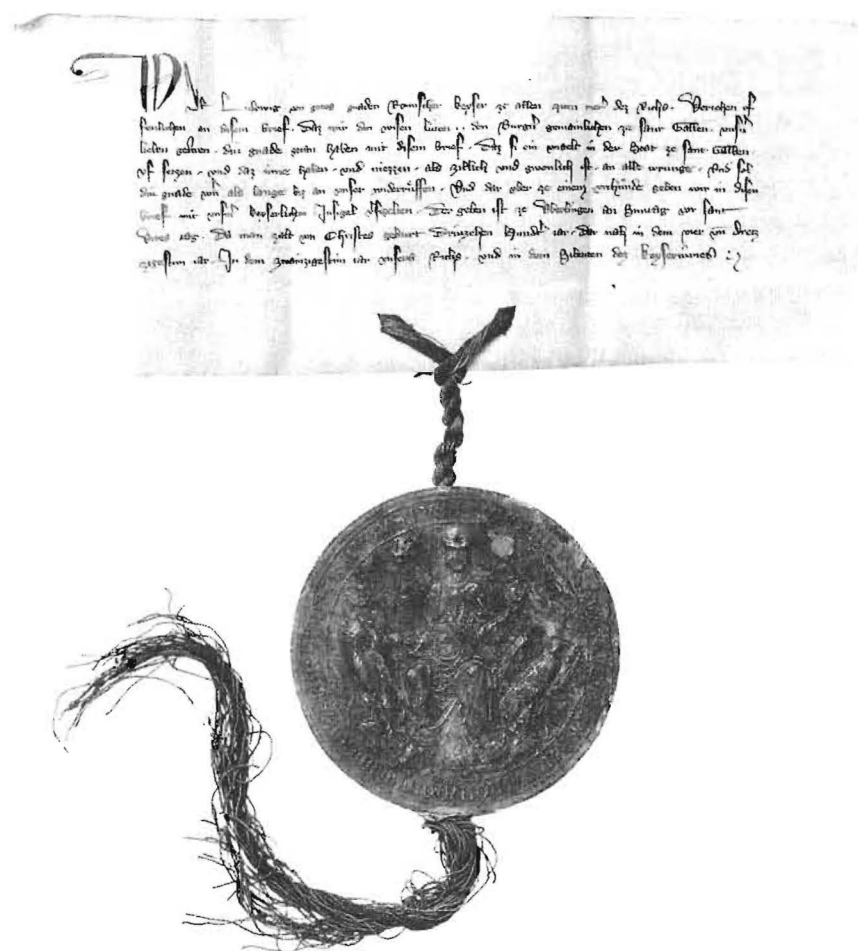 Wir Ludowig von gotes gnaden Romischer keyser ze allen ziten merer dez Richs. Veriehen of
fenlichen an disem brief. Daz wir den unsern lieben .. den Burgern gemainlichen ze sant Gallen. unsern
lieben getriwen. die gnade getan haben mit disem brief. Daz si ein ungelt in der Stat ze sant Gallen.
uf setzen. und daz inne haben. und niezzen. als zitlich und gewonlich ist. an alle irrunge. Und sol
diu gnade wern als lange biz an unser widerrüffen. Und dar über ze einem urchünde geben wir in disen
brief mit unserm keyserlichen Insigel versigelten. Der geben ist ze Überlingen an Suntag vor sant
Vites tag. Do man zalt von Christes geburt Driuzehen hundert iar. Dar nach in dem vier und drizz
zigestim iar. In dem zwainzigestim iar unsers Richs. und in dem Sibenten dez keysertumes